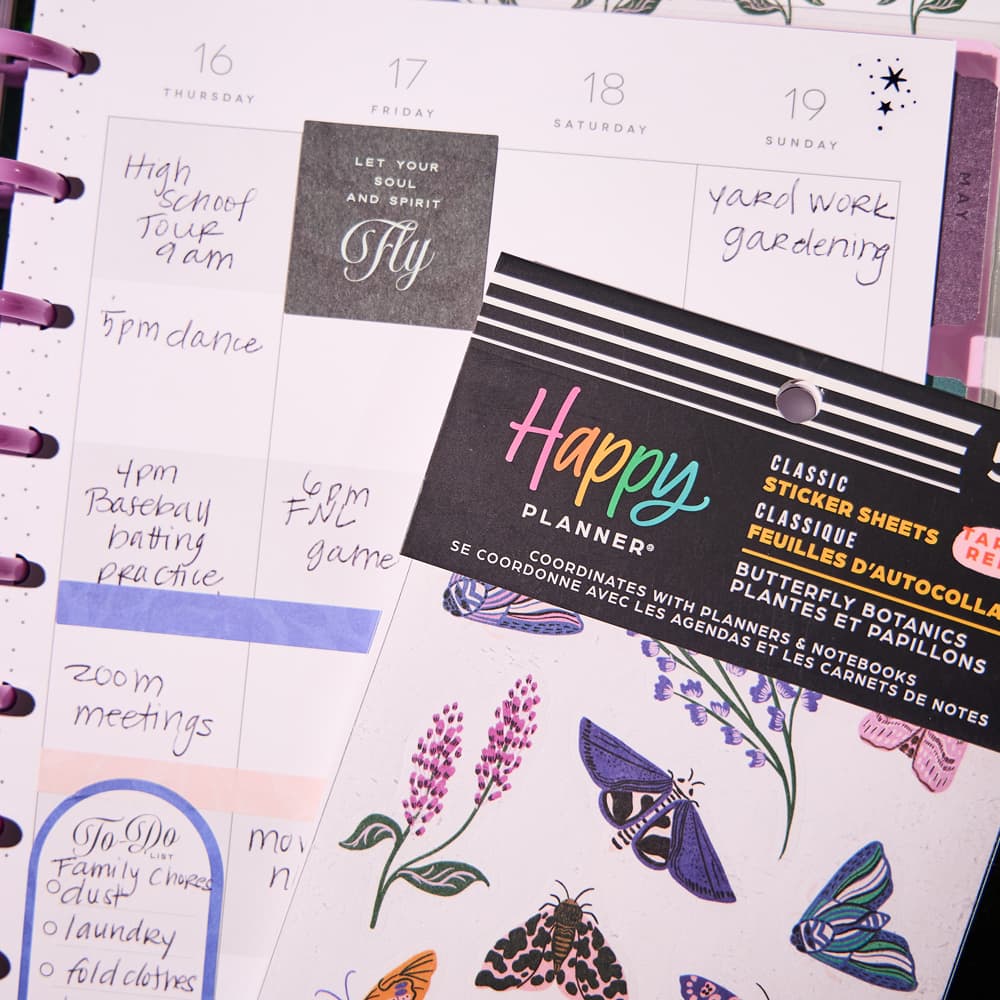 16
THURSDAY
17
FRIDAY
18
SATURDAY
19
SUNDAY
MAY
High
school
Tour
9am
5pm dance
4pm
Baseball
batting
practice
zoom
meetings
To-Do
LIST
Family Chores
dust
laundry
fold clothes
LET YOUR
SOUL
AND SPIRIT
Fly
6pm
FNL
game
yard work
gardening
Happy
PLANNER®
CLASSIC
STICKER SHEETS
CLASSIQUE
FEUILLES D'AUTOCOLLA
BUTTERFLY BOTANICS
PLANTES ET PAPILLONS
COORDINATES WITH PLANNERS & NOTEBOOKS
SE COORDONNE AVEC LES AGENDAS ET LES CARNETS DE NOTES